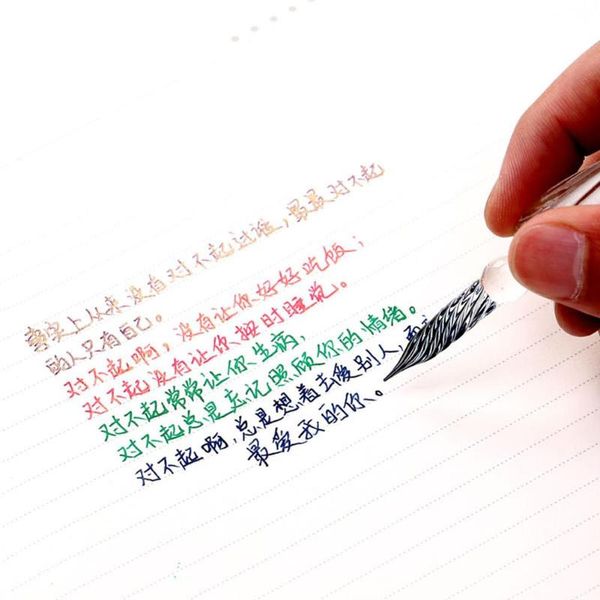 事实上从来没有对不起过谁，最最对不起
的人只有自己。
对不起啊，没有让你好好吃饭；
对不起没有让你按时睡觉。
对不起常常让你生病，
对不起总是忘记照顾你的情绪。
对不起啊，总是想着去爱别人，而
最爱我的你、。